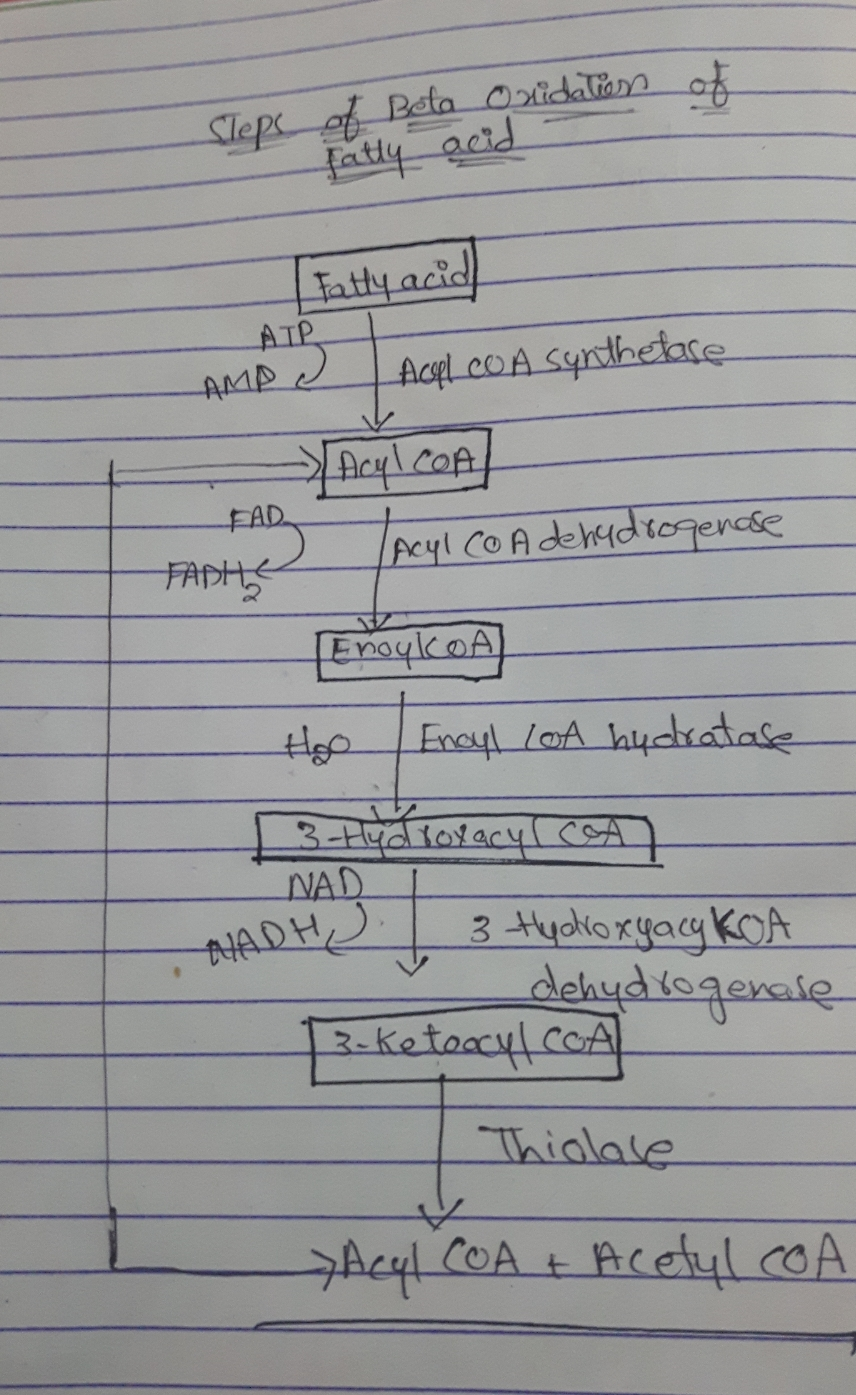 Steps of Beta Oxidation of
Fatty acid
Fatty acid
ATP
AMP
Acyl COA synthetase
Acyl COA
FAD
FADH2
Acyl COA dehydrogenase
Enoyl COA
H2O
Enoyl COA hydratase
3-Hydroxacyl COA
NAD
NADH
3 Hydroxyacyl COA
dehydrogenase
3-Ketoacyl COA
Thiolase
Acyl COA + Acetyl COA